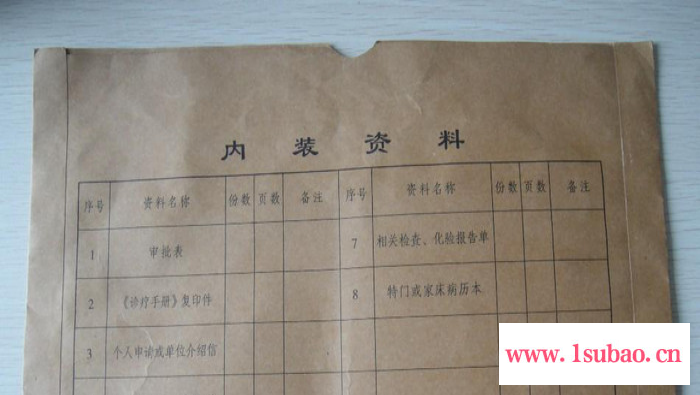 内装资料
序号 资料名称 份数 页数 备注 序号 资料名称 份数 页数 备注
1 审批表 7 相关检查、化验报告单
2 《诊疗手册》复印件 8 特门或家床病历本
3 个人申请或单位介绍信
www.1subao.cn